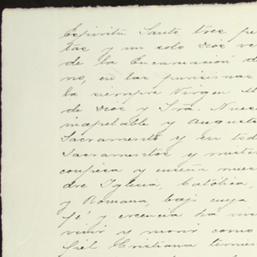 Espiritu Santo tres pe
tas y un solo Dios ve
de la Encarnacion d
no, en las purisimas
la siempre Virgen M
de Dios y Sra. Nues
inefable y Augusto
Sacramento y en tod
Sacramentos y miste
confiesa y enseña nues
dre Iglesia, Católica,
y Romana, bajo cuya
fé y creencia ha vi
vivir y morir como
fiel Cristiana teme